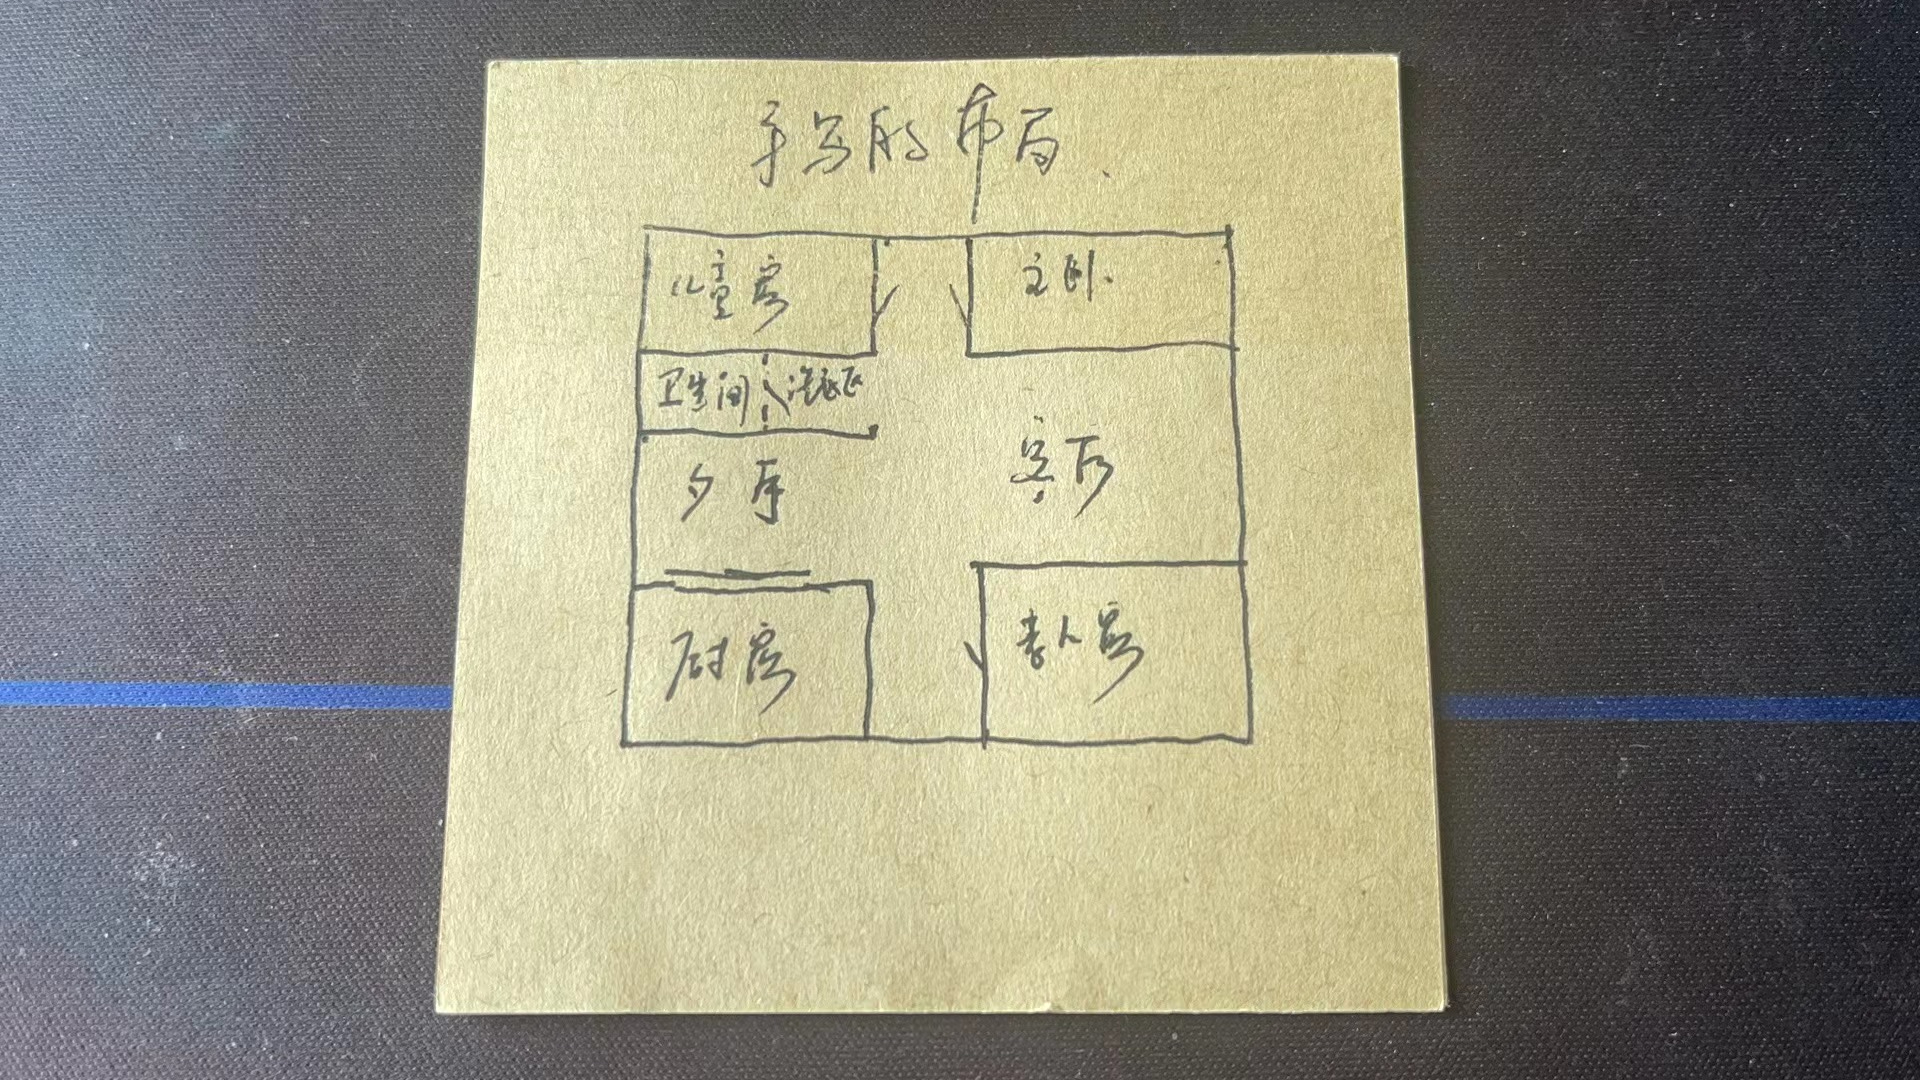 手写的布局
儿童房
主卧
卫生间
洗漱区
客厅
厨房
老人房